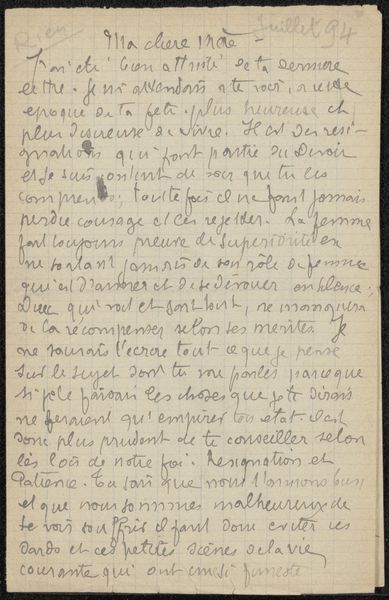 Rien
Juillet 94
Ma chere Mère
J'ai été bien attristé de ta dernière
lettre. Je m'attendais a te voir, a cette
epoque de ta fete plus heureuse et
plus desireuse de vivre. Il est des resi-
gnations qui font partie du Devoir
et je suis content de voir que tu les
comprends; toutefois il ne faut jamais
perdre courage et les rejeter. La femme
fait toujours preuve de Superiorité en
ne sortant jamais de son rôle de femme
qui est d'aimer et de se dévouer en silence;
Dieu qui voit et sait tout, ne manquera
de la récompenser selon ses merites. Je
ne saurais t'ecrire tout ce que je pense
sur le sujet dont tu me parles parceque
si je le faisais les choses que je te dirais
ne feraient qu'empirer ton etat. il est
donc plus prudent de te conseiller selon
les lois de notre foi. Resignation et
Patience. Tu sais que nous t'aimons tous
et que nous sommes malheureux de
te voir souffrir il faut donc eviter ces
et ces petites scènes de la vie
courante qui ont aussi funeste